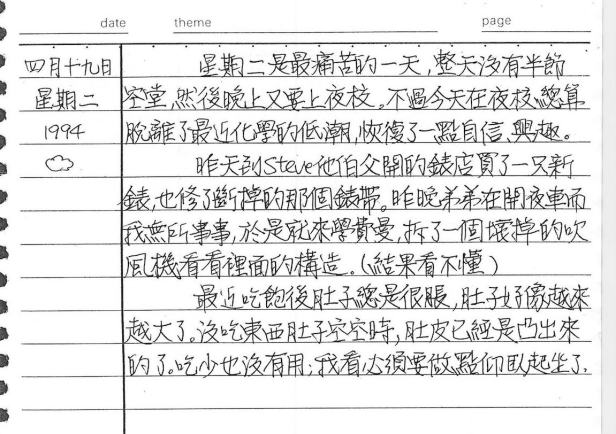 date theme page
四月十九日 星期二是最痛苦的一天,整天沒有半節
星期二 空堂,然後晚上又要上夜校。不過今天在夜校總算
1994 脫離了最近化學的低潮,恢復了一點自信、興趣。
昨天到Steve他伯父開的錶店買了一只新
錶,也修了斷掉的那個錶帶。昨晚弟弟在開夜車而
我無所事事,於是就來學費曼,拆了一個壞掉的吹
風機看看裡面的構造。(結果看不懂)
最近吃飽後肚子總是很脹,肚子好像越來
越大了。沒吃東西肚子空空時,肚皮已經是凸出來
的了。吃少也沒有用;我看必須要做點仰臥起坐了.